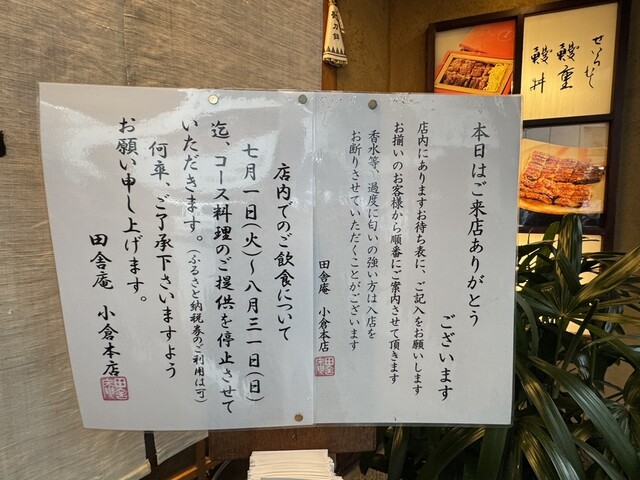 本日はご来店ありがとう
ございます
店内にありますお待ち表に、ご記入をお願いします
お揃いのお客様から順番にご案内させて頂きます
香水等、過度に匂いの強い方は入店を
お断りさせていただくことがございます
田舎庵 小倉本店
店内でのご飲食について
七月一日(火)〜八月三一日(日)
迄、コース料理のご提供を停止させて
いただきます。(ふるさと納税券のご利用は可)
何卒、ご了承下さいますよう
お願い申し上げます。
田舎庵 小倉本店
せいろむし
鰻重
鰻丼